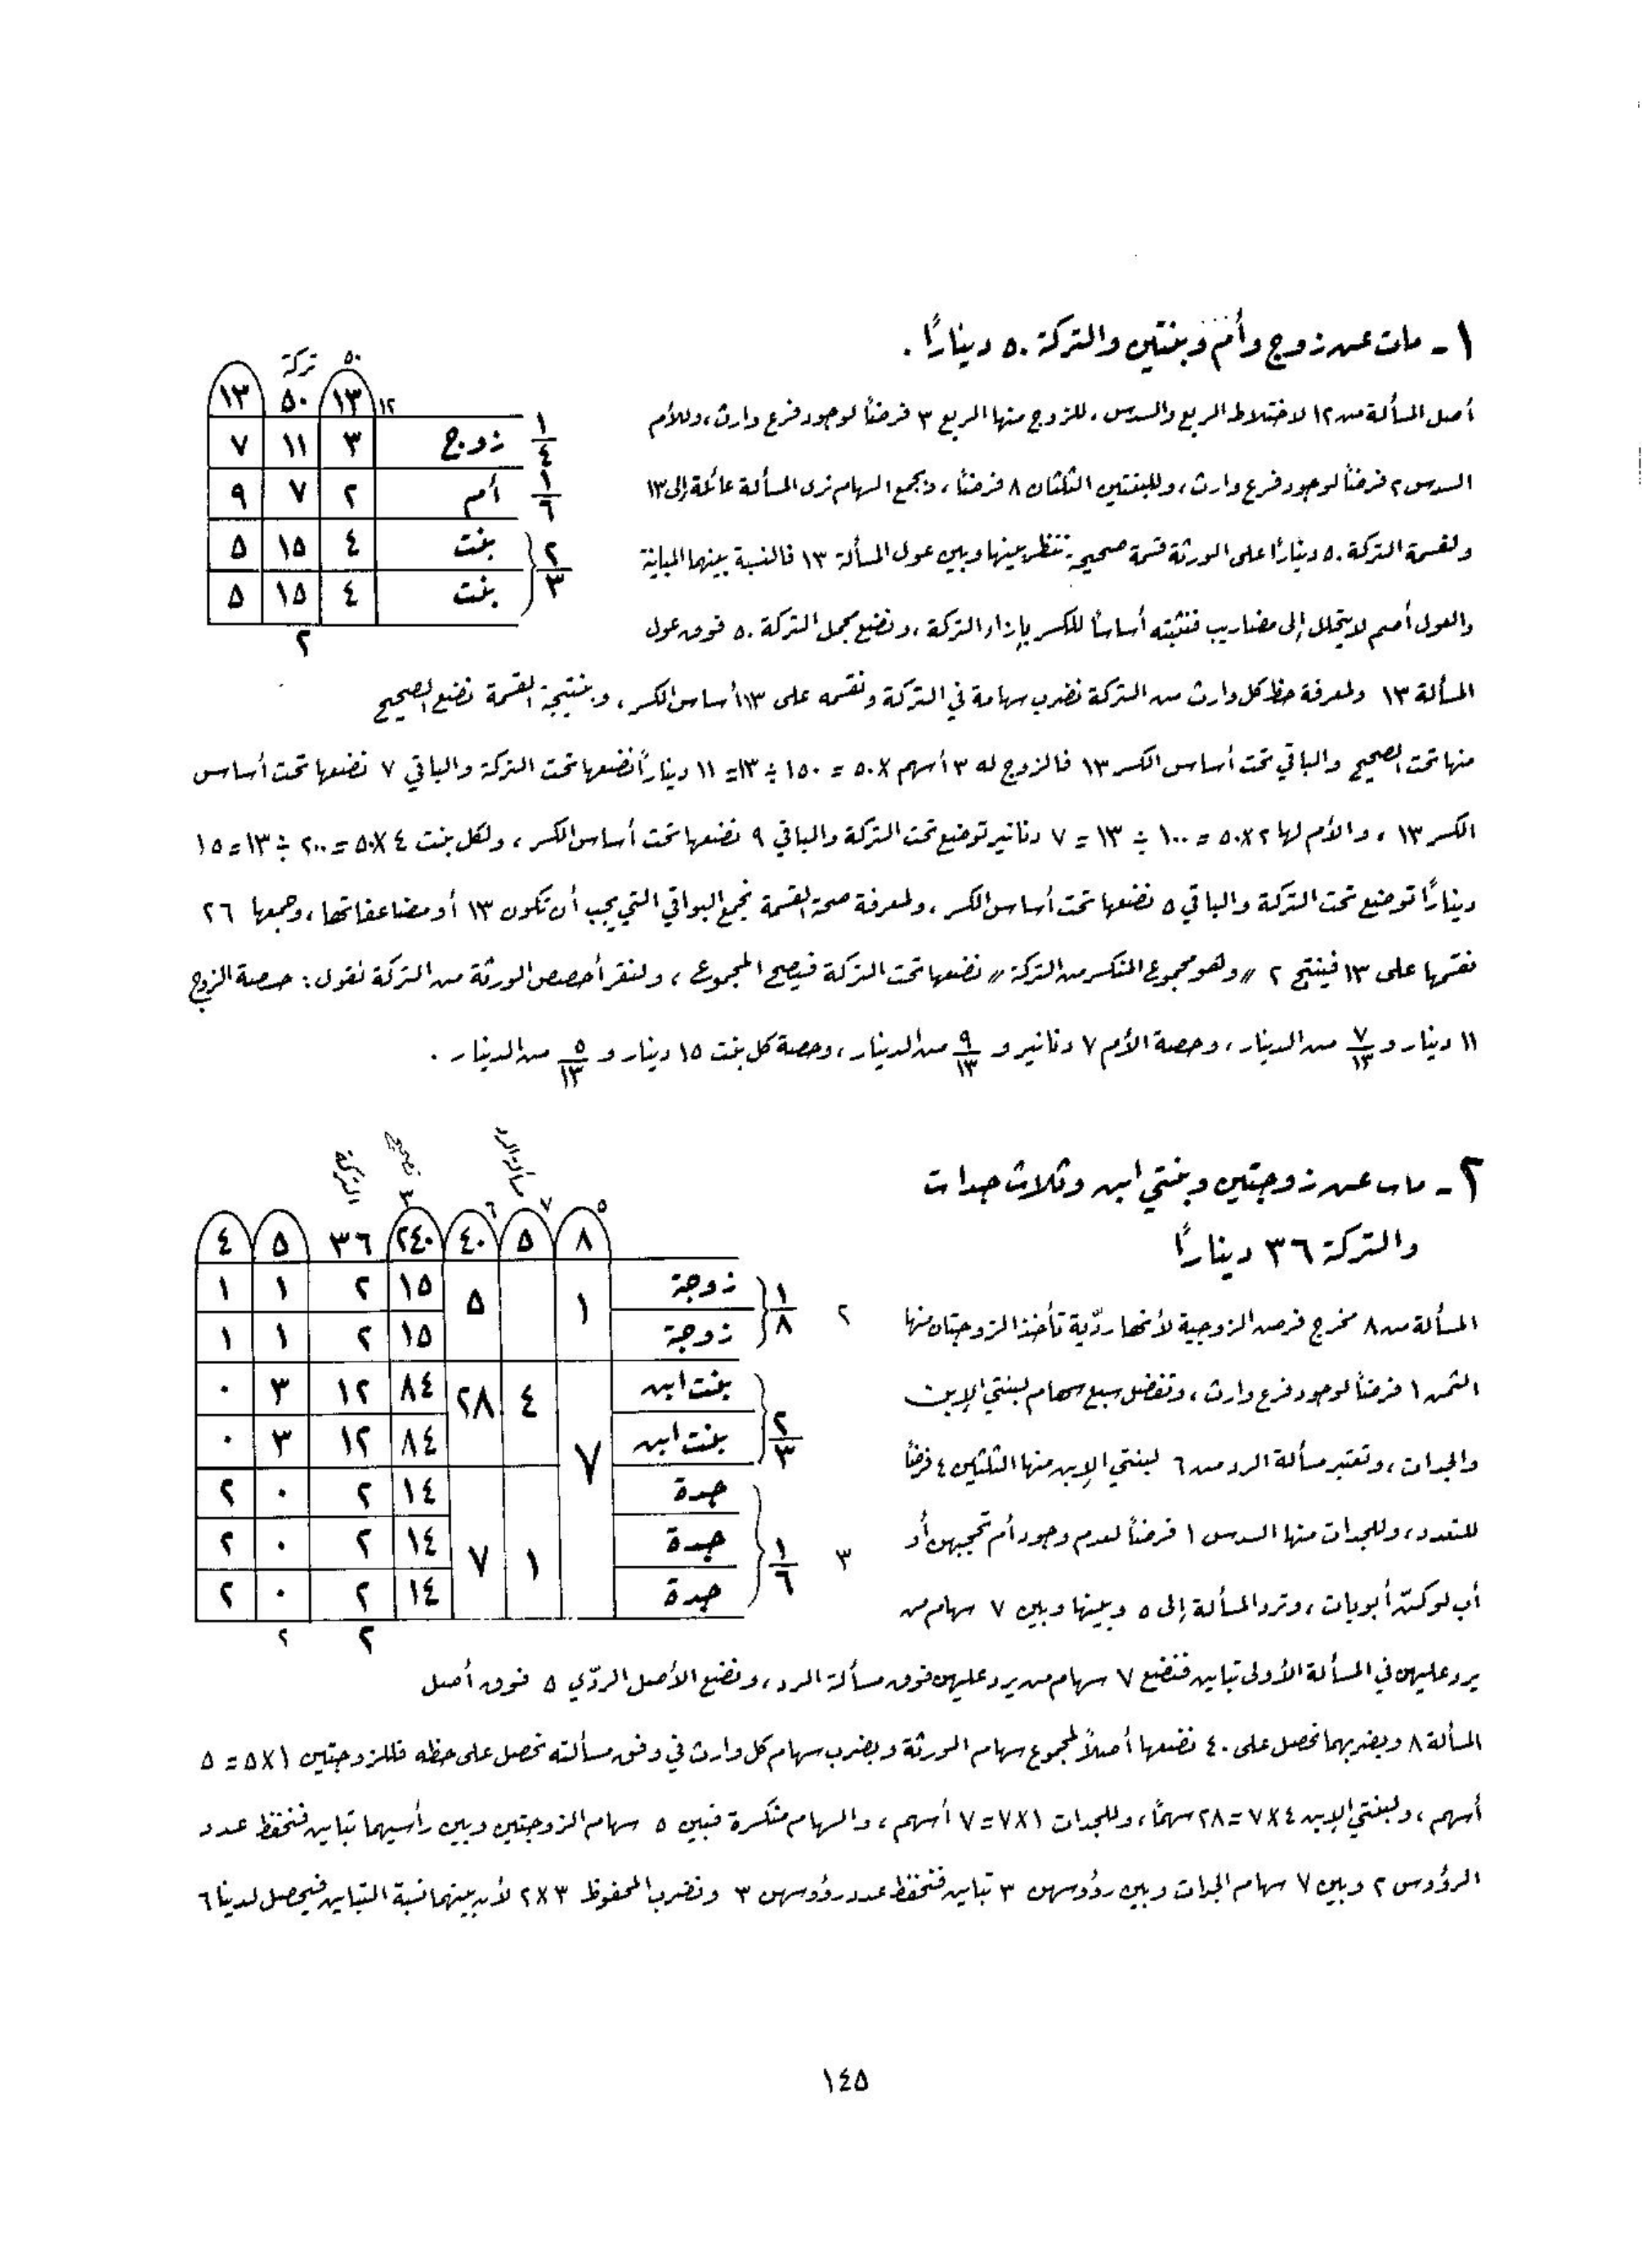 ١ـ مات عن زوج وأم وبنتين والتركة ٥٠ دينارًا .
تركة ٥٠
١٣ ٥٠ ١٣ ١٢
٧ ١١ ٣ زوج ١/٤
٩ ٧ ٢ أم ١/٦
٥ ١٥ ٤ بنت ٢/٣
٥ ١٥ ٤ بنت
٢
أصل المسألة من ١٢ لاختلاط الربع والسدس ، للزوج منها الربع ٣ فرضاً لوجود فرع وارث ، وللأم
السدس ٢ فرضاً لوجود فرع وارث ، وللبنتين الثلثان ٨ فرضاً ، وبجمع السهام نرى المسألة عائلة إلى ١٣
ولقسمة التركة ٥٠ دينارًا على الورثة قسمة صحيحة ننظر بينها وبين عول المسألة ١٣ فالنسبة بينهما المباينة
والعول أصم لا يتحلل إلى مضاريب فنثبته أساساً للكسر بإزاء التركة ، ونضع مجمل التركة ٥٠ فوق عول
المسألة ١٣ ولمعرفة حظ كل وارث من التركة نضرب سهامه في التركة ونقسمه على ١٣ أساس الكسر ، وبنتيجة القسمة نضع الصحيح
منها تحت الصحيح والباقي تحت أساس الكسر ١٣ فالزوج له ٣ أسهم × ٥٠ = ١٥٠ ÷ ١٣ = ١١ دينارًا نضعها تحت التركة والباقي ٧ نضعها تحت أساس
الكسر ١٣ ، والأم لها ٢ × ٥٠ = ١٠٠ ÷ ١٣ = ٧ دنانير توضع تحت التركة والباقي ٩ نضعها تحت أساس الكسر ، ولكل بنت ٤ × ٥٠ = ٢٠٠ ÷ ١٣ = ١٥
دينارًا توضع تحت التركة والباقي ٥ نضعها تحت أساس الكسر ، ولمعرفة صحة القسمة نجمع البواقي التي يجب أن تكون ١٣ أو مضاعفاتها ، وجمعها ٢٦
نقسمها على ١٣ فينتج ٢ « وهو مجموع المنكسر من التركة » نضعها تحت التركة فيصح المجموع ، ولنقرأ حصص الورثة من التركة نقول : حصة الزوج
١١ دينار و ٧/١٣ من الدينار ، وحصة الأم ٧ دنانير و ٩/١٣ من الدينار ، وحصة كل بنت ١٥ دينار و ٥/١٣ من الدينار .
٢ـ مات عن زوجتين وبنتي ابن وثلاث جدات
والتركة ٣٦ دينارًا
التركة تصحيح مسألة الرد
٦ ٧ ٥
٤ ٥ ٣٦ ٢٤٠ ٤٠ ٥ ٨
١ ١ ٢ ١٥ ٥ ١ زوجة ١/٨ ٢
١ ١ ٢ ١٥ زوجة
٠ ٣ ١٢ ٨٤ ٢٨ ٤ ٧ بنت ابن ٢/٣
٠ ٣ ١٢ ٨٤ بنت ابن
٢ ٠ ٢ ١٤ جدة
٢ ٠ ٢ ١٤ ٧ ١ جدة ١/٦ ٣
٢ ٠ ٢ ١٤ جدة
٢ ٢
المسألة من ٨ مخرج فرض الزوجية لأنها ردّية تأخذ الزوجتان منها
الثمن ١ فرضاً لوجود فرع وارث ، وتفضل سبع سهام لبنتي الإبن
والجدات ، وتعتبر مسألة الرد من ٦ لبنتي الإبن منها الثلثين ٤ فرضاً
للتعدد ، وللجدات منها السدس ١ فرضاً لعدم وجود أم تحجبهن أو
أب لو كنّ أبويات ، وترد المسألة إلى ٥ وبينها وبين ٧ سهام من
يرد عليهن في المسألة الأولى تباين فنضع ٧ سهام من يرد عليهن فوق مسألة الرد ، ونضع الأصل الردّي ٥ فوق أصل
المسألة ٨ وبضربهما نحصل على ٤٠ نضعها أصلاً لمجموع سهام الورثة وبضرب سهام كل وارث في وفق مسألته نحصل على حظه فللزوجتين ١ × ٥ = ٥
أسهم ، ولبنتي الإبن ٤ × ٧ = ٢٨ سهمًا ، وللجدات ١ × ٧ = ٧ أسهم ، والسهام منكسرة فبين ٥ سهام الزوجتين وبين رأسيهما تباين فنحفظ عدد
الرؤوس ٢ وبين ٧ سهام الجدات وبين رؤوسهن ٣ تباين فنحفظ عدد رؤوسهن ٣ ونضرب المحفوظ ٣ × ٢ لأن بينهما نسبة التباين فيحصل لدينا ٦
١٤٥